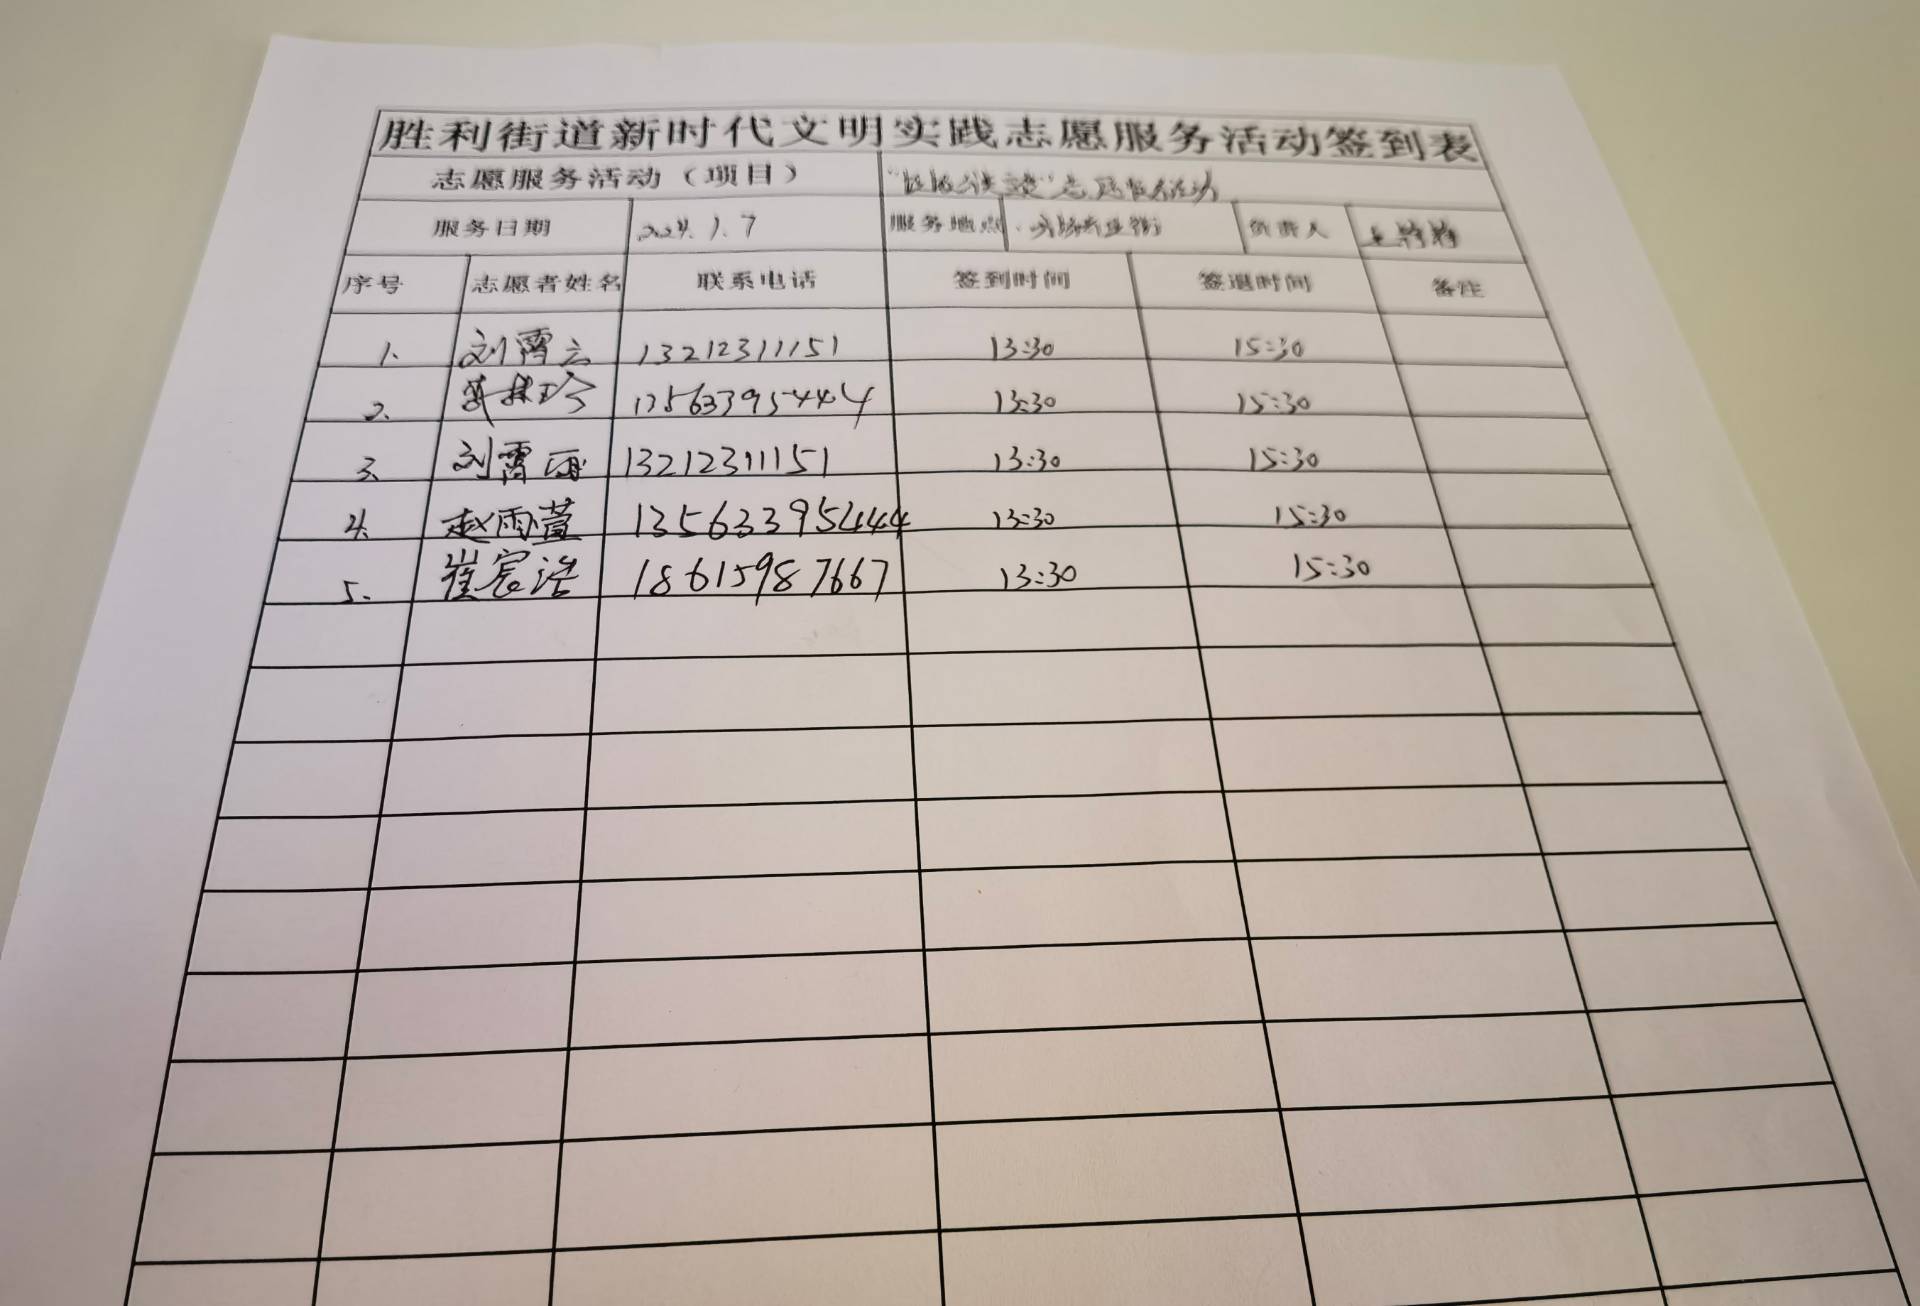 胜利街道新时代文明实践志愿服务活动签到表
志愿服务活动（项目） 志愿服务活动
服务日期 2024.1.7 服务地点 负责人
序号 志愿者姓名 联系电话 签到时间 签退时间 备注
1. 刘霄云 13212311151 13:30 15:30
2. 13563395444 13:30 15:30
3. 刘霄雨 13212311151 13:30 15:30
4. 赵雨萱 13563395444 13:30 15:30
5. 崔宸浩 18615987667 13:30 15:30